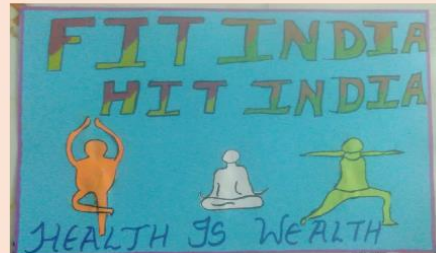 FIT INDIA
HIT INDIA
HEALTH IS WEALTH